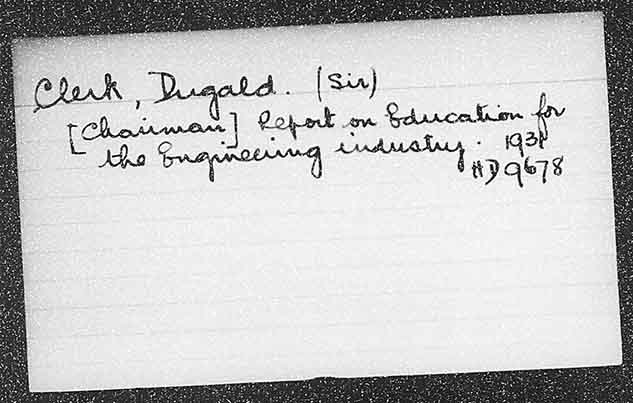 Clerk, Dugald. (Sir)
[Chairman] Report on Education for
the Engineering industry. 1931
HD9678